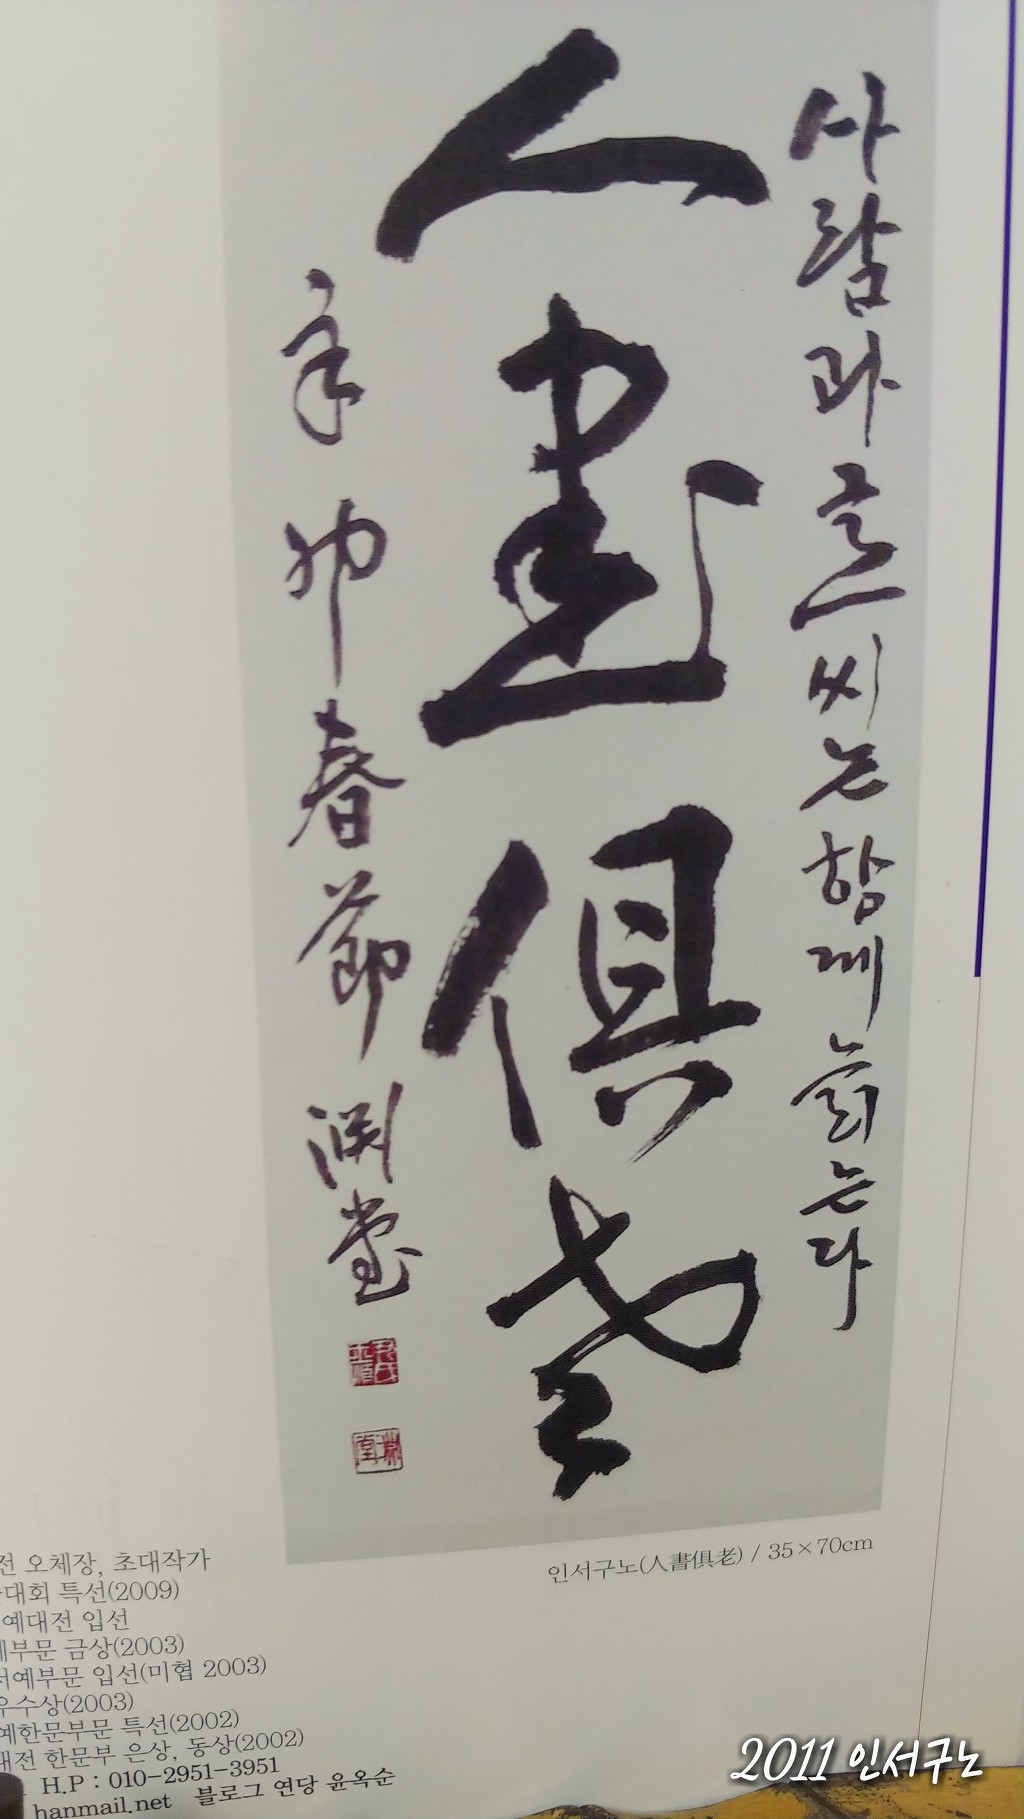 사람과 글씨는 함께 늙는다
人書俱老
辛卯春節 淵堂
尹玉順
淵堂
인서구노(人書俱老) / 35×70cm
전 오체장, 초대작가
대회 특선(2009)
예대전 입선
부문 금상(2003)
서예부문 입선(미협 2003)
우수상(2003)
예한문부문 특선(2002)
대전 한문부 은상, 동상(2002)
H.P : 010-2951-3951
hanmail.net 블로그 연당 윤옥순
2011 인서구노